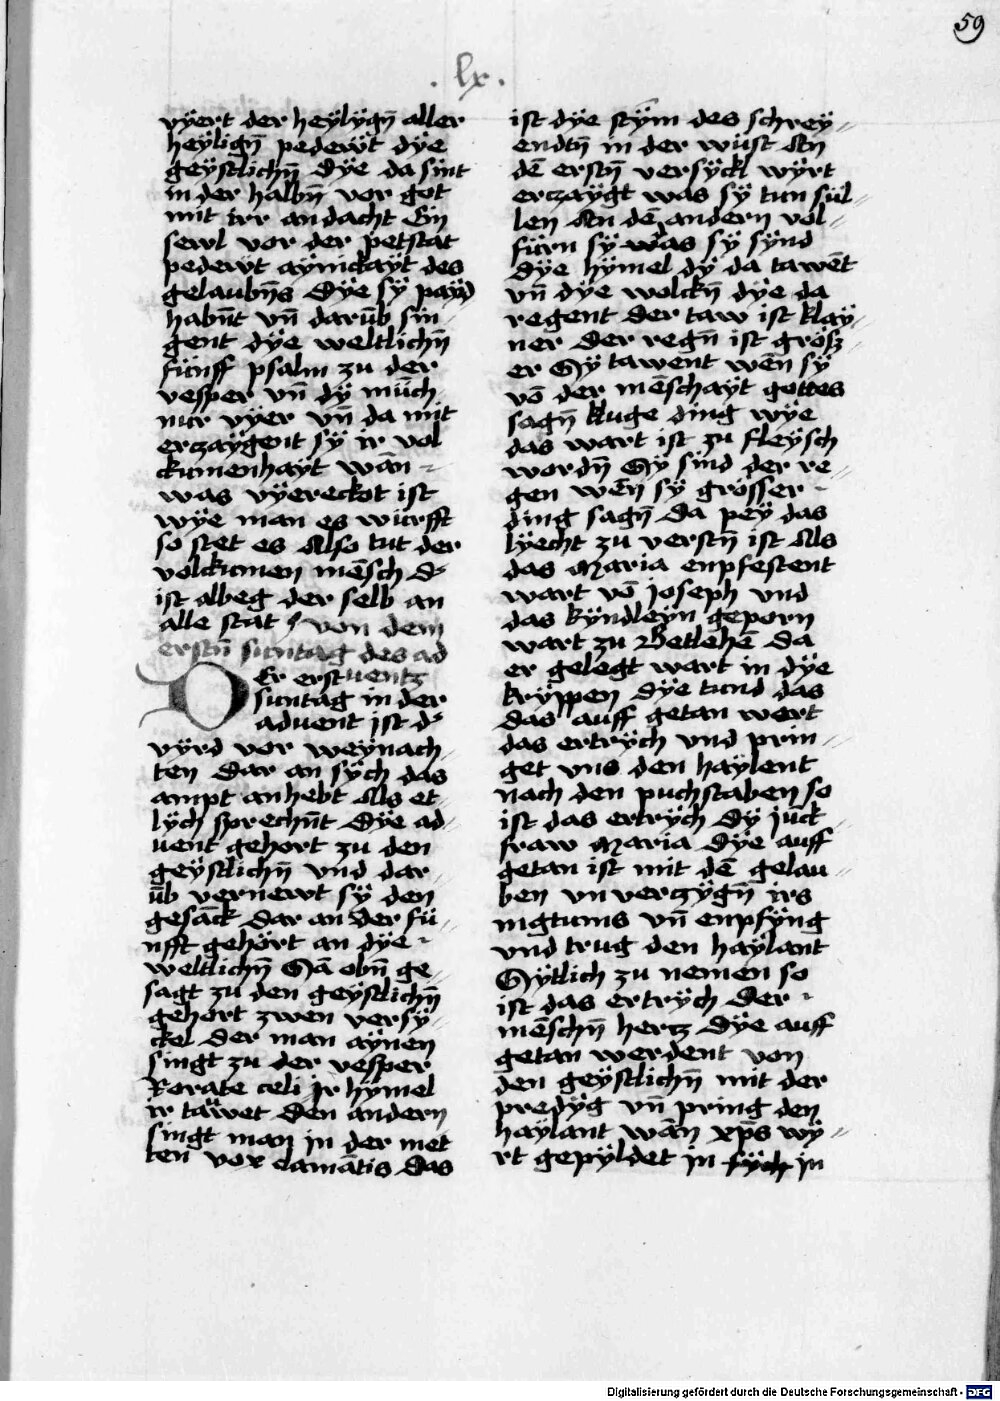 59
. lx .
vÿert der heÿlÿgn̄ aller
heÿlign̄ pedewt dÿe
geÿstlichn̄ dÿe da sint
in der halbn̄ vor got
mit irr andacht Ein
sewl vor der petstat
pedewt aÿnickaÿt des
gelaubn̄s Dÿe sÿ paÿd
habn̄t vn̄ darūb sin
gent dÿe weltlichn̄
fünff psalm zu der
vesper vn̄ dÿ münch
nur vÿer vn̄ da mit
erczaÿgent sÿ ir vol
ckumenhaÿt wān
was vÿereckot ist
wÿe man es würfft
so stet es Also tut der
volckumen mēsch d'
ist albeg der selb an
alle stat von dem
erstn̄ suntag des ad
uentz
DEr erst
suntag in der
aduent ist d'
vÿrd vor weÿnach
ten Dar an sÿch das
ampt anhebt Als et
lÿch sprechn̄t Dÿe ad
uent gehort zu den
geÿstlichn̄ vnd dar
ūb vernewt sÿ den
gesāck dar an Der fü
nfft gehört an dÿe
weltlichn̄ Sā obn̄ ge
sagt zu den geÿstlichn̄
gehort zwen versÿ
ckel der man aÿnen
singt zu der vesper
Rorate celi Ir hÿmel
ir tawet Den andern
singt man in der met
ten vox clamātis Das
ist dÿe stÿm des schreÿ
endtn̄ in der wüst An
dē erstn̄ versÿckl wÿrt
erczaÿgt was sÿ tun sül
len An dē andern vol
fürn sÿ was sÿ sÿnd
Dÿe hÿmel dÿ da tawēt
vn̄ dÿe wolckn̄ dÿe da
regent Der taw ist klaÿ
ner Der regn̄ ist größ
er Sÿ tawent wēn sÿ
vō der mēschaÿt gottes
sagn̄ kluge ding wÿe
das wart ist zu fleÿsch
wordn̄ Sÿ sind der re
gen wēn sÿ grösser
ding sagn̄ Da peÿ das
lÿecht zu verstn̄ ist Als
das Maria enpfestent
wart vō Joseph vnd
das kÿndleÿn geporn
wart zu Betlehē Da
er gelegt wart in dÿe
krÿppen Dÿe tund das
das auff getan wert
das ertrÿch vnd prin
get vns den haÿlent
nach den puchstaben so
ist das ertrÿch dÿ Juck
fraw Maria Dÿe auff
getan ist mit dē gelau
ben vn verczÿgn̄ irs
mgtums vn̄ enpfÿng
vnd trug den haÿlant
Sÿtlich zu nemen so
ist das ertrÿch Der
mēschn̄ hertz Dÿe auff
getan werdent von
den geÿstlichn̄ mit der
predÿg vn̄ pring den
haÿlant wān xp̄s wÿ
rt gepÿldet in sÿch in
Digitalisierung gefördert durch die Deutsche Forschungsgemeinschaft - DFG